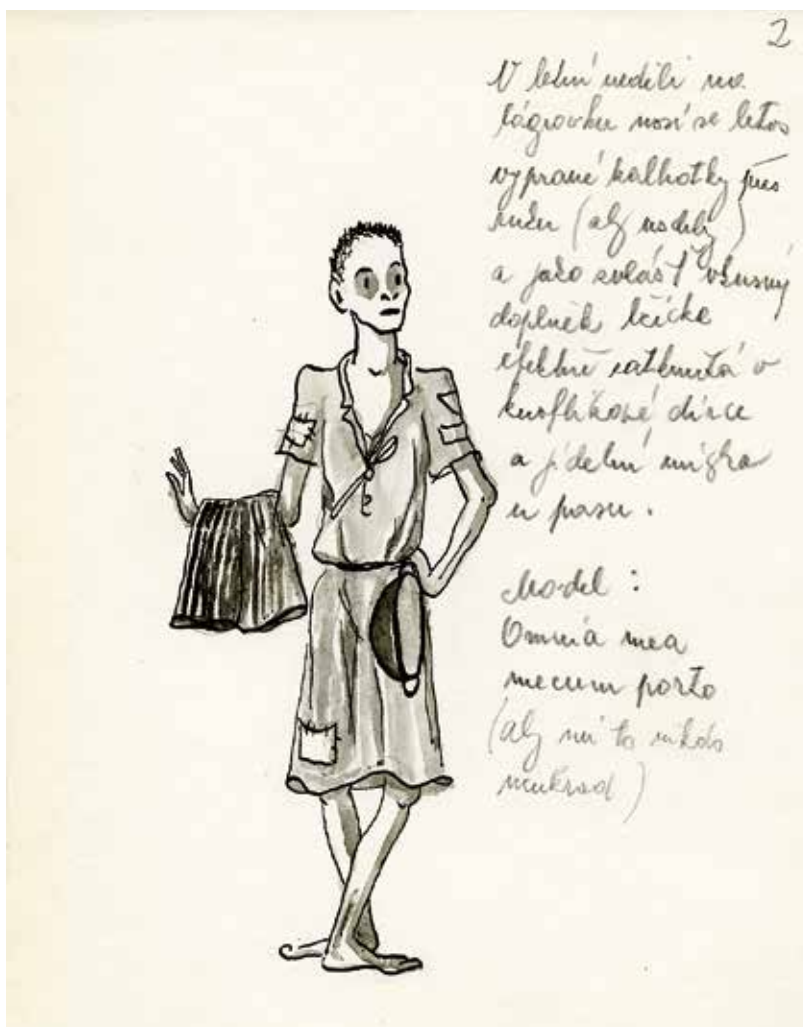 2
V letní neděli na
lágrovku nosí se letos
vyprané kalhotky přes
ruku (aby uschly)
a jako zvlášť vkusný
doplněk lžička
efektně zatknutá v
knoflíkové dírce
a jídelní miska
u pasu.
Model:
Omnia mea
mecum porto
(aby mi to nikdo
neukrad)